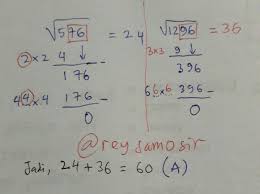 √576 = 24
2 × 2 4 ↓
176
44 × 4 176 –
0
√1296 = 36
3×3 9 ↓
396
66×6 396 –
0
@reysamosir
Jadi, 24 + 36 = 60 (A)